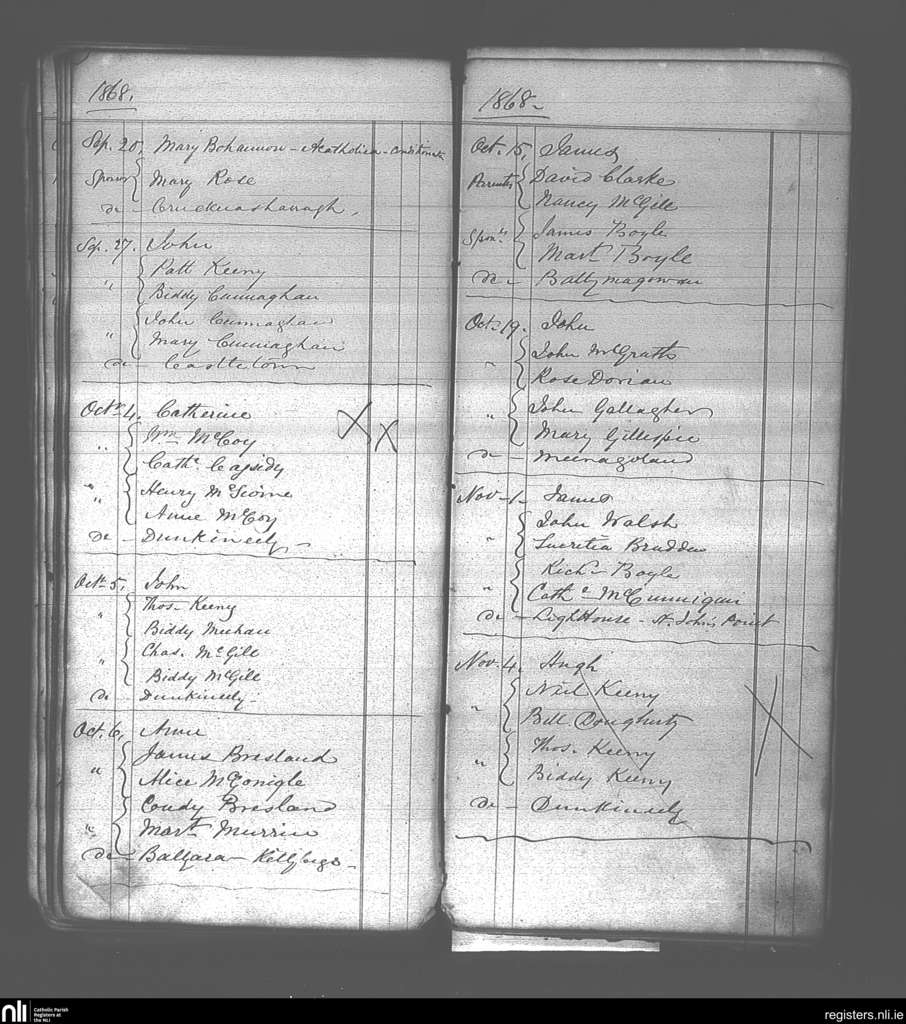 1868.
Sep. 20, Mary Bohannon - Acatholica - Conditionate
Sponsor Mary Rose
de - Crucknashanagh.
Sep. 27. John
Patt Keeny
" Biddy Cunnaghan
John Cunnaghan
" Mary Cunnaghan
de - Castletown
Octr. 4. Catherine
" Wm McCoy
Cathe. Cassidy
" Henry
" Anne McCoy
de - Dunkineely -
Octr. 5, John
" Thos - Keeny
Biddy Meehan
" Chas. McGill
Biddy McGill
de - Dunkineely -
Oct. 6, Anne
James Bresland
" Alice McGonigle
Condy Bresland
" Mart. Murrin
de - Killybegs -
1868 -
Oct. 15, James
Parents David Clarke
Nancy McGill
Spons. James Boyle
Mart. Boyle
de - Ballymagowan
Oct. 19. John
" John McGrath
Rose Dorian
" John Gallagher
Mary Gillespie
de - Meenagoland
Nov - 1 - James
" John Walsh
Lucretia Bradden
" Rich - Boyle
Cathe McCunnigan
de - LightHouse - St. John's Point
Nov. 4. Hugh
" Neil Keeny
Bell Dougherty
" Thos. Keeny
Biddy Keeny
de - Dunkineely
nli
Catholic Parish
Registers at
the NLI
registers.nli.ie